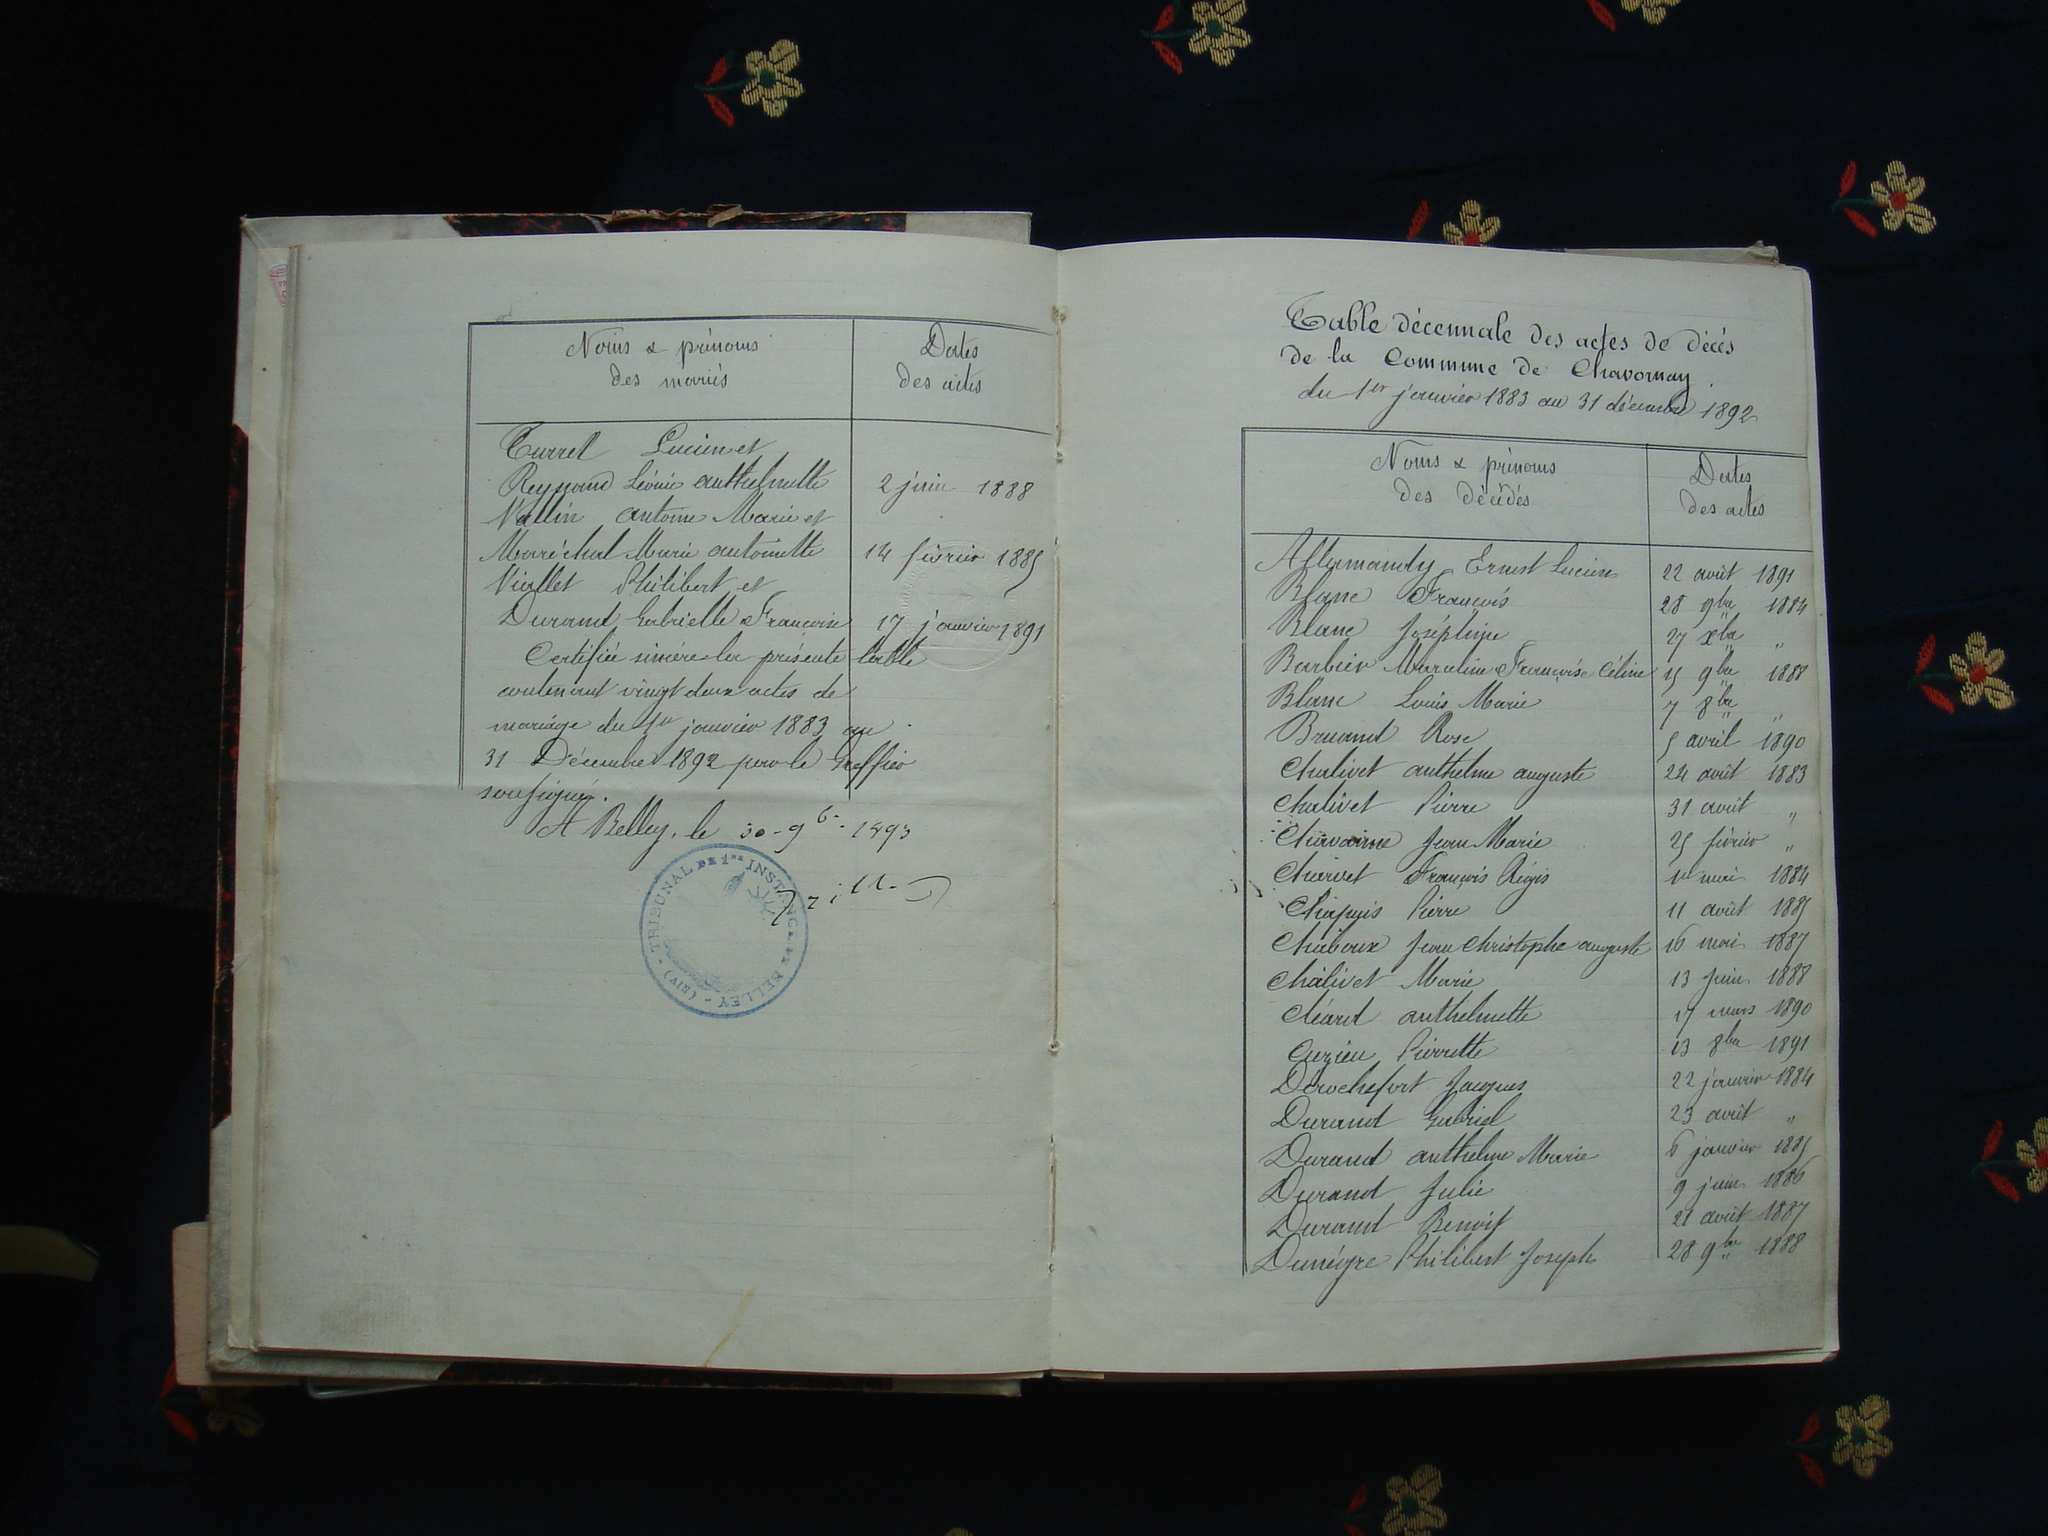 Noms & prénoms
des mariés
Dates
des actes
Turrel Lucien et
Reynaud Léonie anthelmette 2 juin 1888
Vallin antoine Marie et
Maréchal Marie antoinette 14 février 1885
Viallet Philibert et
Durand Gabrielle Françoise 17 janvier 1891
Certifiée sincère la présente table
contenant vingt deux actes de
mariage du 1er janvier 1883 au
31 Décembre 1892 par le Greffier
soussigné.
A Belley, le 30 - 9b - 1893
TRIBUNAL DE 1RE INSTANCE DE BELLEY - (AIN)
Table décennale des actes de décès
de la Commune de Chavornay.
du 1er janvier 1883 au 31 décembre 1892
Noms & prénoms
des décédés
Dates
des actes
Allemandy Ernest Lucien 22 août 1891
Blanc François 28 9bre 1884
Blanc Joséphine 27 xbre "
Barbier Marceline Françoise Céline 15 9bre 1888
Blanc Louis Marie 7 8bre "
Bruand Rose 5 avril 1890
Chalivet anthelme auguste 24 août 1883
Chalivet Pierre 31 août "
Chavanne Jean Marie 25 février "
Charvet François Régis 1er mai 1884
Chapuis Pierre 11 août 1885
Chaboux Jean Christophe auguste 16 mai 1887
Chalivet Marie 13 juin 1888
Cléard anthelmette 17 mars 1890
Cuzieu Pierrette 13 8bre 1891
Dérochefort Jacques 22 janvier 1884
Durand Gabriel 23 avril "
Durand anthelme Marie 6 janvier 1885
Durand Julie 9 juin 1886
Durand Benoit 21 août 1887
Dunègre Philibert Joseph 28 9bre 1888